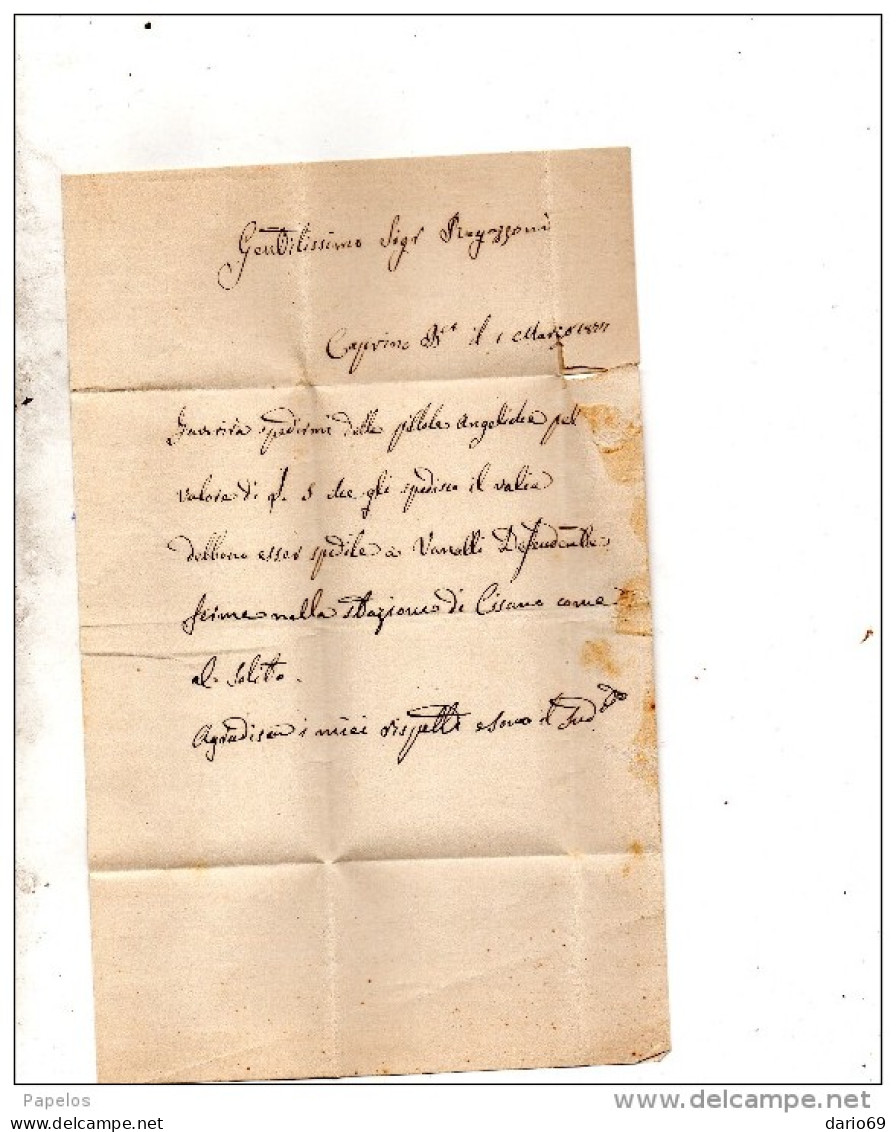 Gentilissimo Sigr Ragazzoni
Caprino Bo il 1 Marzo 1877
spedirmi delle pilole Angeliche pel
valore di f. 5 che gli spedisco il valia
debbono esser spedite a Vanalli Defendente
ferme nella stazione di Cisano come
al solito.
Agradisca i miei rispetti e sono il Sud
Papelos
delcampe.net
dario69